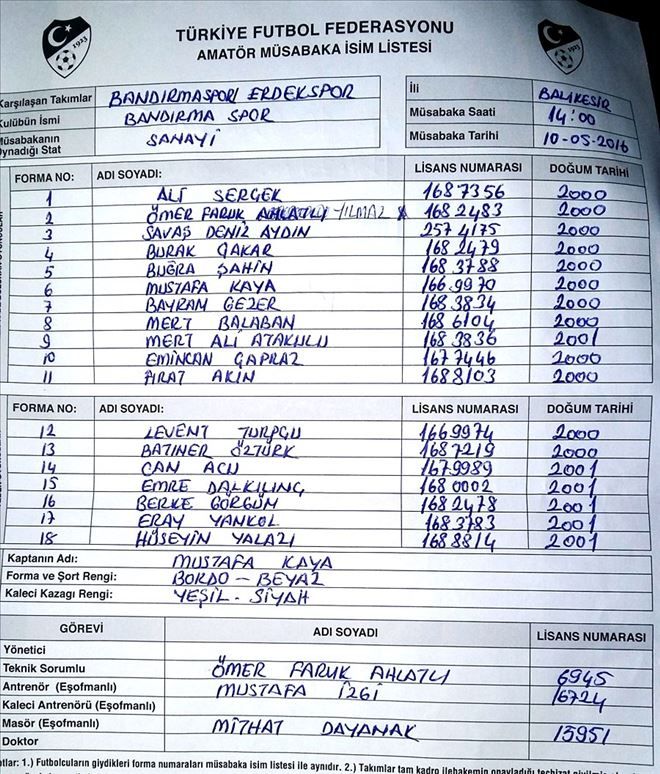 TÜRKİYE FUTBOL FEDERASYONU
AMATÖR MÜSABAKA İSİM LİSTESİ
1923 1923
Karşılaşan Takımlar BANDIRMASPOR/ ERDEKSPOR
İli BALIKESİR
Kulübün İsmi BANDIRMA SPOR
Müsabaka Saati 14:00
Müsabakanın Oynadığı Stat SANAYİ
Müsabaka Tarihi 10-05-2016
FORMA NO: ADI SOYADI: LİSANS NUMARASI DOĞUM TARİHİ
1 ALİ SERGEK 1687356 2000
2 ÖMER FARUK YILMAZ 1682483 2000
3 SAVAŞ DENİZ AYDIN 2574175 2000
4 BURAK ÇAKAR 1682479 2000
5 BUĞRA ŞAHİN 1683788 2000
6 MUSTAFA KAYA 1669970 2000
7 BAYRAM GEZER 1683834 2000
8 MERT BALABAN 1686104 2000
9 MERT ALİ ATAKULU 1683836 2001
10 EMİNCAN ÇAPRAZ 1677446 2000
11 FIRAT AKIN 1688103 2000
FORMA NO: ADI SOYADI: LİSANS NUMARASI DOĞUM TARİHİ
12 LEVENT TURPÇU 1669974 2000
13 BATINER ÖZTÜRK 1687219 2000
14 CAN ACU 1679989 2001
15 EMRE DALKILINÇ 1680002 2001
16 BERKE GÖRGÜN 1682478 2001
17 ERAY YANKOL 1683783 2001
18 HÜSEYİN YALAZI 1688814 2001
Kaptanın Adı: MUSTAFA KAYA
Forma ve Şort Rengi: BORDO - BEYAZ
Kaleci Kazagı Rengi: YEŞİL - SİYAH
GÖREVİ ADI SOYADI LİSANS NUMARASI
Yönetici
Teknik Sorumlu ÖMER FARUK AHLATLI 6945
Antrenör (Eşofmanlı) MUSTAFA İZGİ 16724
Kaleci Antrenörü (Eşofmanlı)
Masör (Eşofmanlı) MİTHAT DAYANAK 13951
Doktor
otlar: 1.) Futbolcuların giydikleri forma numaraları müsabaka isim listesi ile aynıdır. 2.) Takımlar tam kadro